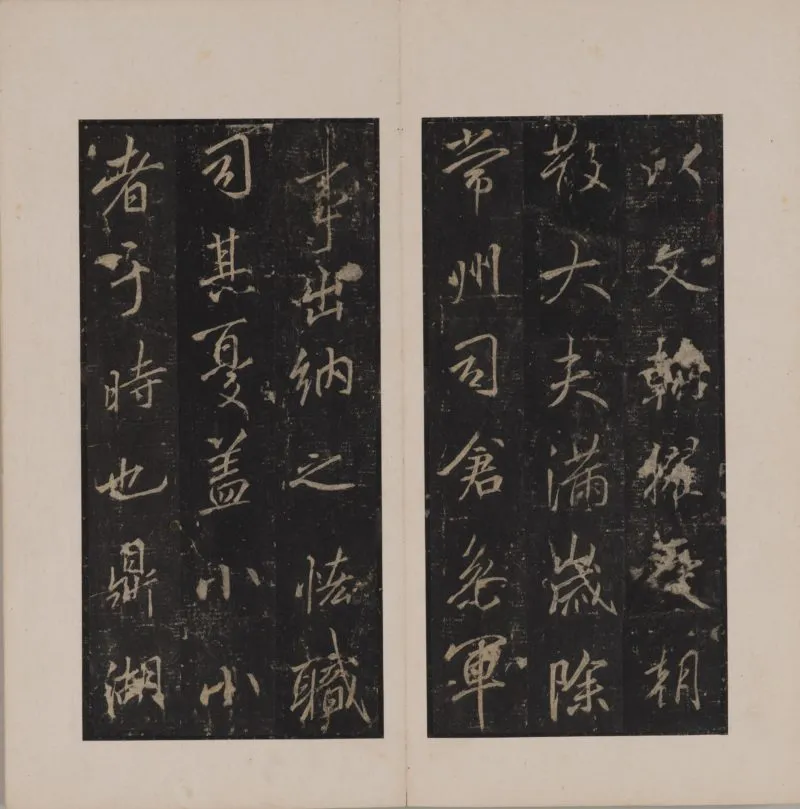 以文翰擢朝
散大夫滿歲除
常州司倉參軍
事出納之恡職
司其憂盖小小
者于時也鼎湖